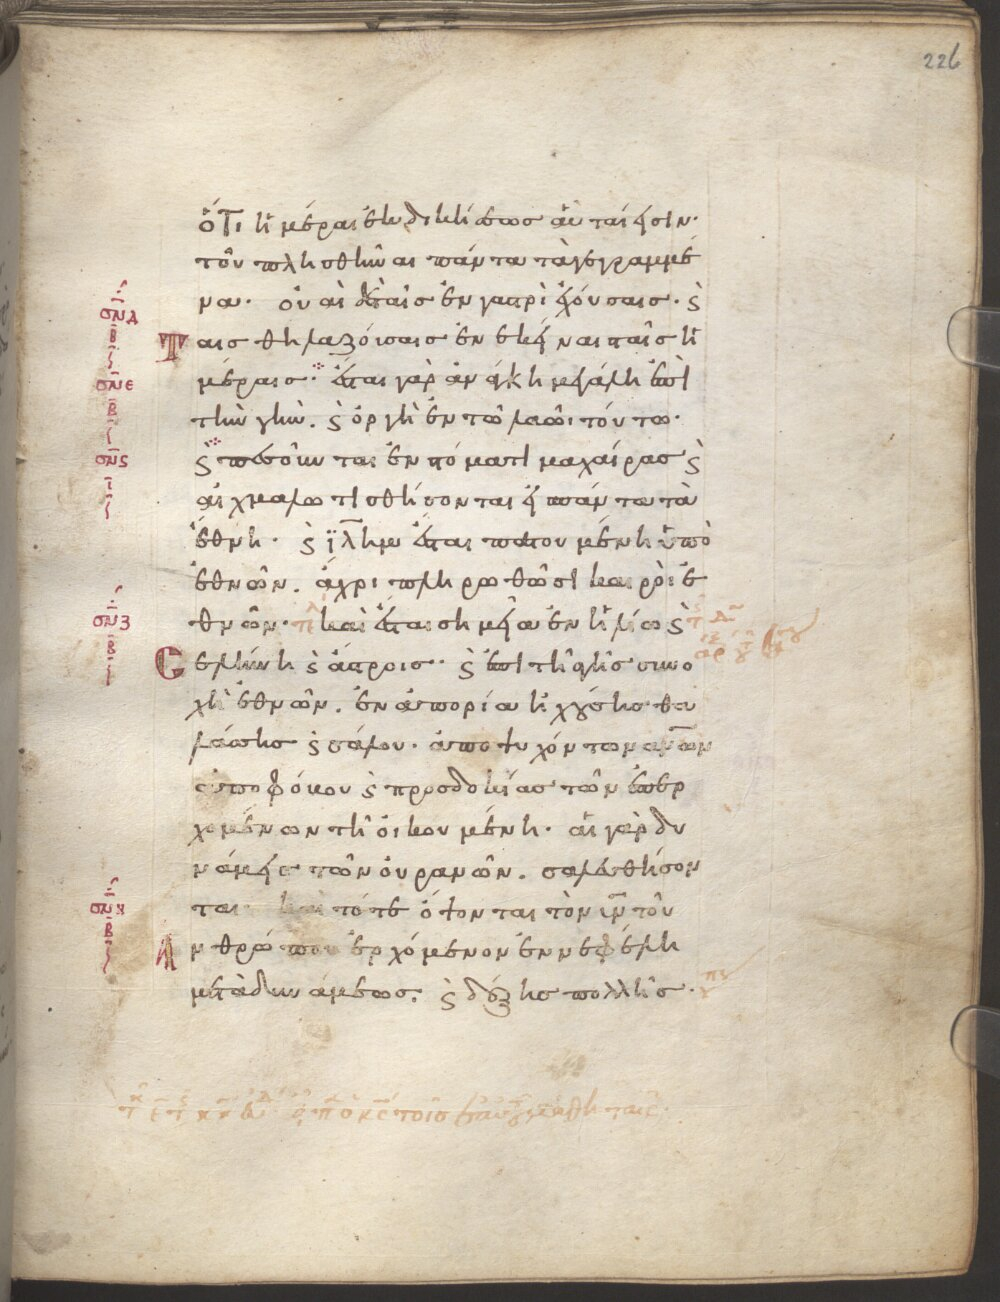 226
ὅτι ἡμέραι ἐκδικήσεως αὗταί εἰσιν·
τοῦ πλησθῆναι πάντα τὰ γεγραμμέ
να· οὐαὶ δὲ ταῖς ἐν γαστρὶ ἐχούσαις· ϛ̀
σνδ
β
Ταις θηλαζούσαις ἐν ἐκείναις ταῖς ἡ
μέραις· ἔσται γὰρ ἀνάγκη μεγάλη ἐπὶ
σνε
β
τὴν γὴν. ϛ̀ ὀργὴ ἐν τῶ λαῶι τούτω·
ϛ̀ πεσοῦνται ἐν στόματι μαχαίρας ϛ̀
σνϛ
ι
αἰχμαλωτισθήσονται εἰς πάντα τὰ
ἔθνη· ϛ̀ ϊλημ ἔσται πατουμένη ὑπὸ
ἐθνῶν. ἄχρι πληρωθῶσι καιροὶ ἐ
θνῶν· καὶ ἔσται σημεῖα ἐν ἡλίω ϛ̀
σνζ
β
Σελήνη ϛ̀ ἄστροις· ϛ̀ ἐπὶ τῆς γῆς συνο
χὴ ἐθνῶν. ἐν ἀπορία ἠχούσης θα
λάσσης ϛ̀ σάλου· ἀποψυχόντων ανων
ἀπὸ φόβου ϛ̀ προσδοκίας τῶν ἐπερ
χομένων τῆ οἰκουμένη· αἱ γὰρ δυ
νάμεις τῶν οὐρανῶν. σαλευθήσον
ται καὶ τότε ὄψονται τὸν υν τοῦ
σνη
β
Ανθρώπου ἐρχόμενον ἐν νεφέλη
μετὰ δυνάμεως. ϛ̀ δόξης πολλῆς·